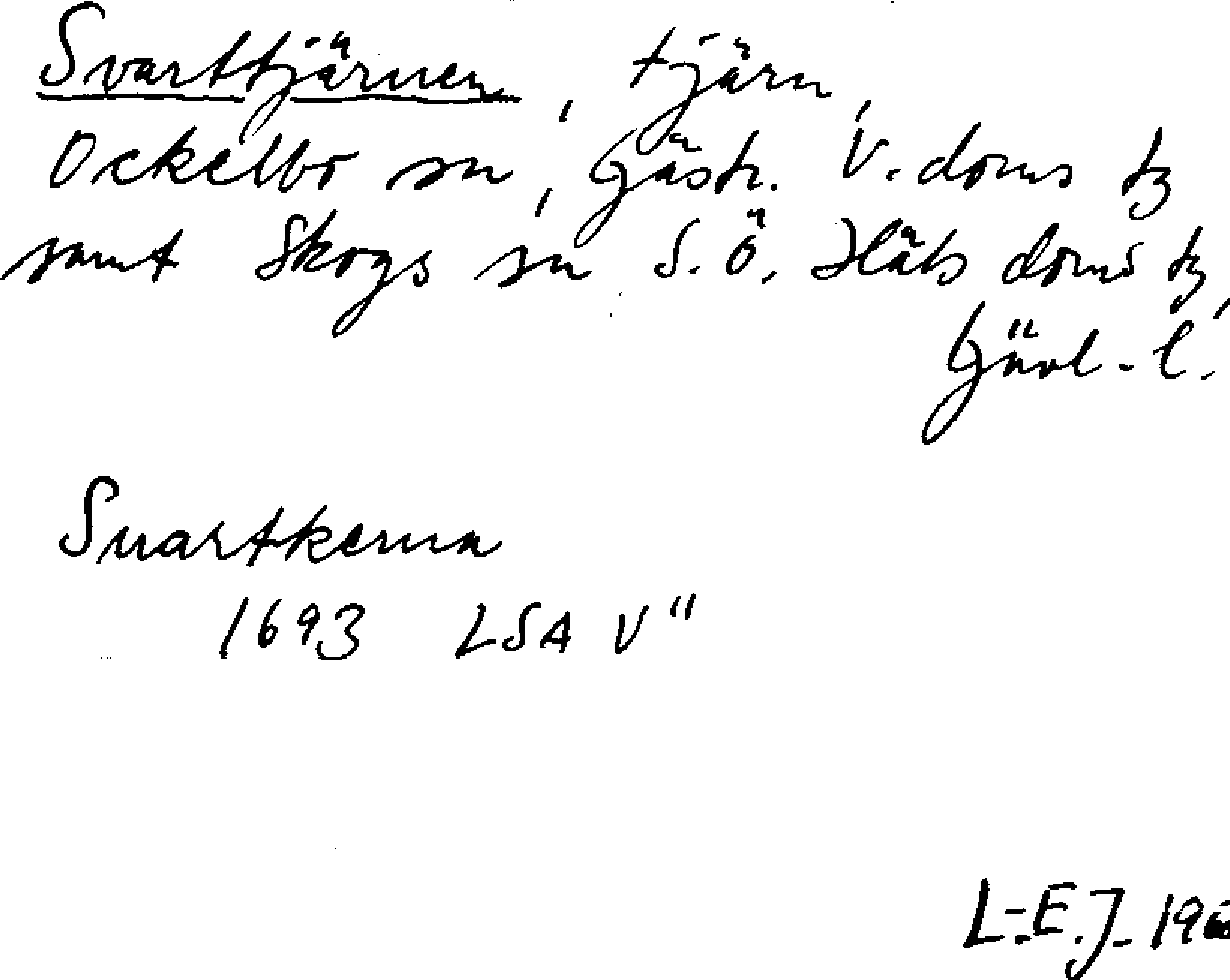 Svarttjärnen, tjärn,
Ockelbo sn, Gästr. V. doms tg
samt Skogs sn S.Ö. Häls doms tg,
Gävl. l.
Suartkerna
1693 LSA V"
L-E.J. 19